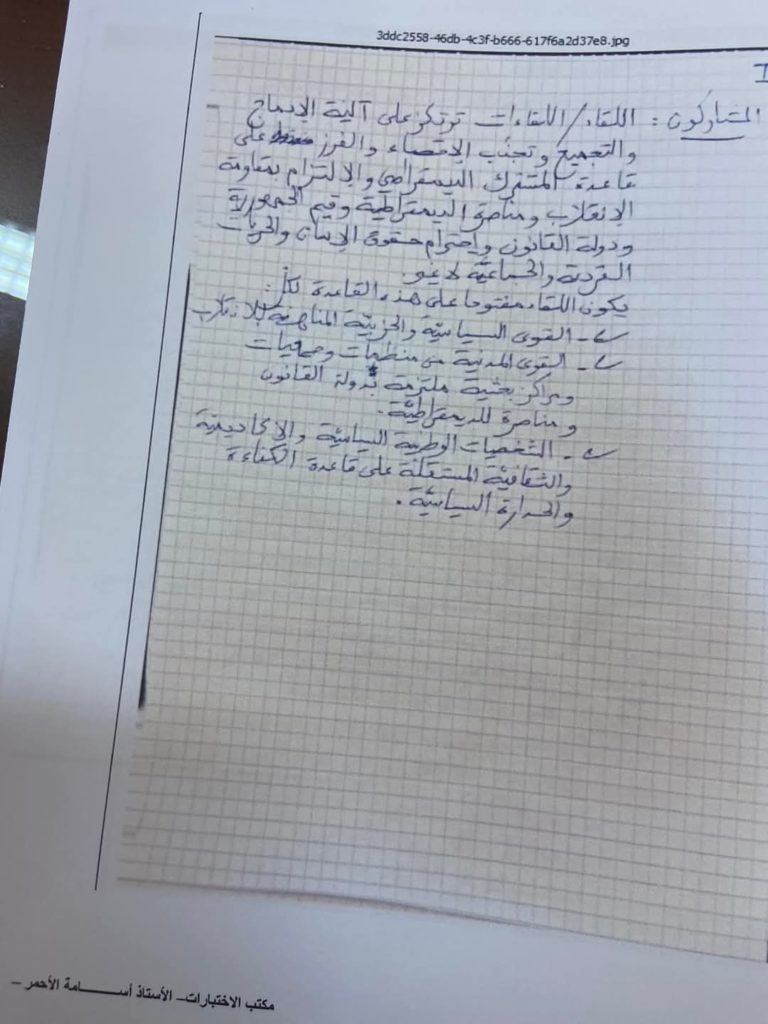 3ddc2558-46db-4c3f-b666-617f6a2d37e8.jpg
I
المشاركون : اللقاء/اللقاءات ترتكز على آلية الإدماج
والتجميع وتجنب الإقصاء والفرز على
قاعدة المشترك الديمقراطي والالتزام بمقاومة
الإنقلاب ومناصرة الديمقراطية وقيم الجمهورية
ودولة القانون وإحترام حقوق الإنسان والحريات
الفردية والجماعية لا غير.
يكون اللقاء مفتوحا على هذه القاعدة لكلّ :
- القوى السياسيّة والحزبيّة المناهضة للانقلاب
- القوى المدنية من منظمات وجمعيات
ومراكز بحثية ملتزمة بدولة القانون
ومناصرة للديمقراطيّة.
- الشخصيات الوطنية السياسيّة والاكاديمية
والثقافيّة المستقلّة على قاعدة الكفاءة
والجدارة السياسيّة .
مكتب الاختبارات– الأستاذ أســـــامة الأحمر –